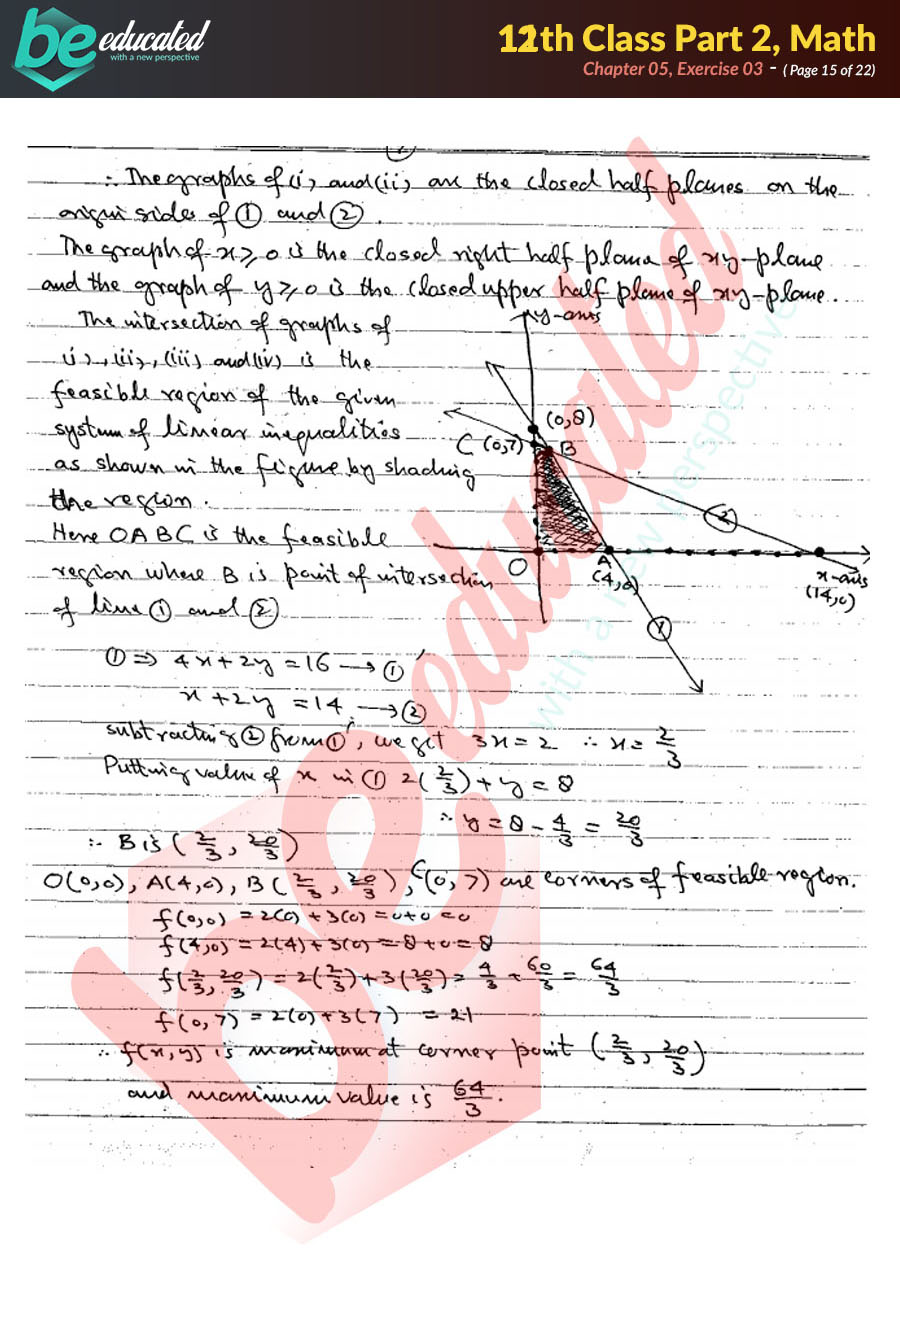 be educated
with a new perspective
12th Class Part 2, Math
Chapter 05, Exercise 03 - ( Page 15 of 22)
∴ The graphs of (i), and (ii), are the closed half planes on the
origin sides of ① and ②.
The graph of x ≥ 0 is the closed right half plane of xy-plane
and the graph of y ≥ 0 is the closed upper half plane of xy-plane.
The intersection of graphs of
(i), (ii), (iii) and (iv) is the
feasible region of the given
system of linear inequalities
as shown in the figure by shading
the region.
Here OABC is the feasible
region where B is point of intersection
of line ① and ②
y-axis
(0,8)
C (0,7)
B
②
O
A
(4,0)
x-axis
(14,0)
①
① ⇒ 4x + 2y = 16 → ①′
x + 2y = 14 → ②
subtracting ② from ①′, we get 3x = 2 ∴ x = 2/3
Putting value of x in ① 2(2/3) + y = 8
∴ y = 8 - 4/3 = 20/3
∴ B is (2/3, 20/3)
O(0,0), A(4,0), B(2/3, 20/3), C(0,7) are corners of feasible region.
f(0,0) = 2(0) + 3(0) = 0+0 = 0
f(4,0) = 2(4) + 3(0) = 8 + 0 = 8
f(2/3, 20/3) = 2(2/3) + 3(20/3) = 4/3 + 60/3 = 64/3
f(0,7) = 2(0) + 3(7) = 21
∴ f(x,y) is maximum at corner point (2/3, 20/3)
and maximum value is 64/3.
be educated
with a new perspective